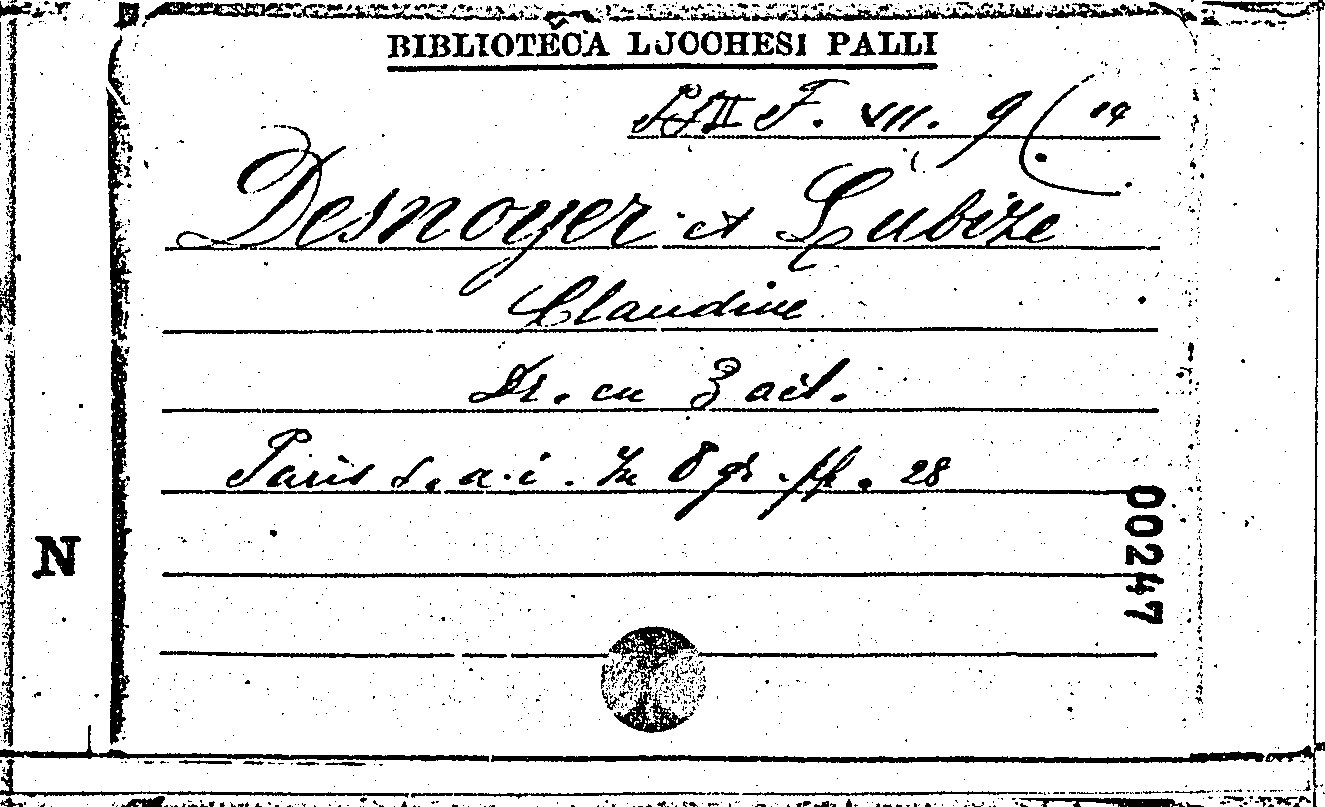 BIBLIOTECA LUCCHESI PALLI
F. VII. 9 (14
Desnoyer et Lubize
Claudine
Dr. en 3 act.
Paris s. a. i. In 8 gr. pp. 28
N
00247